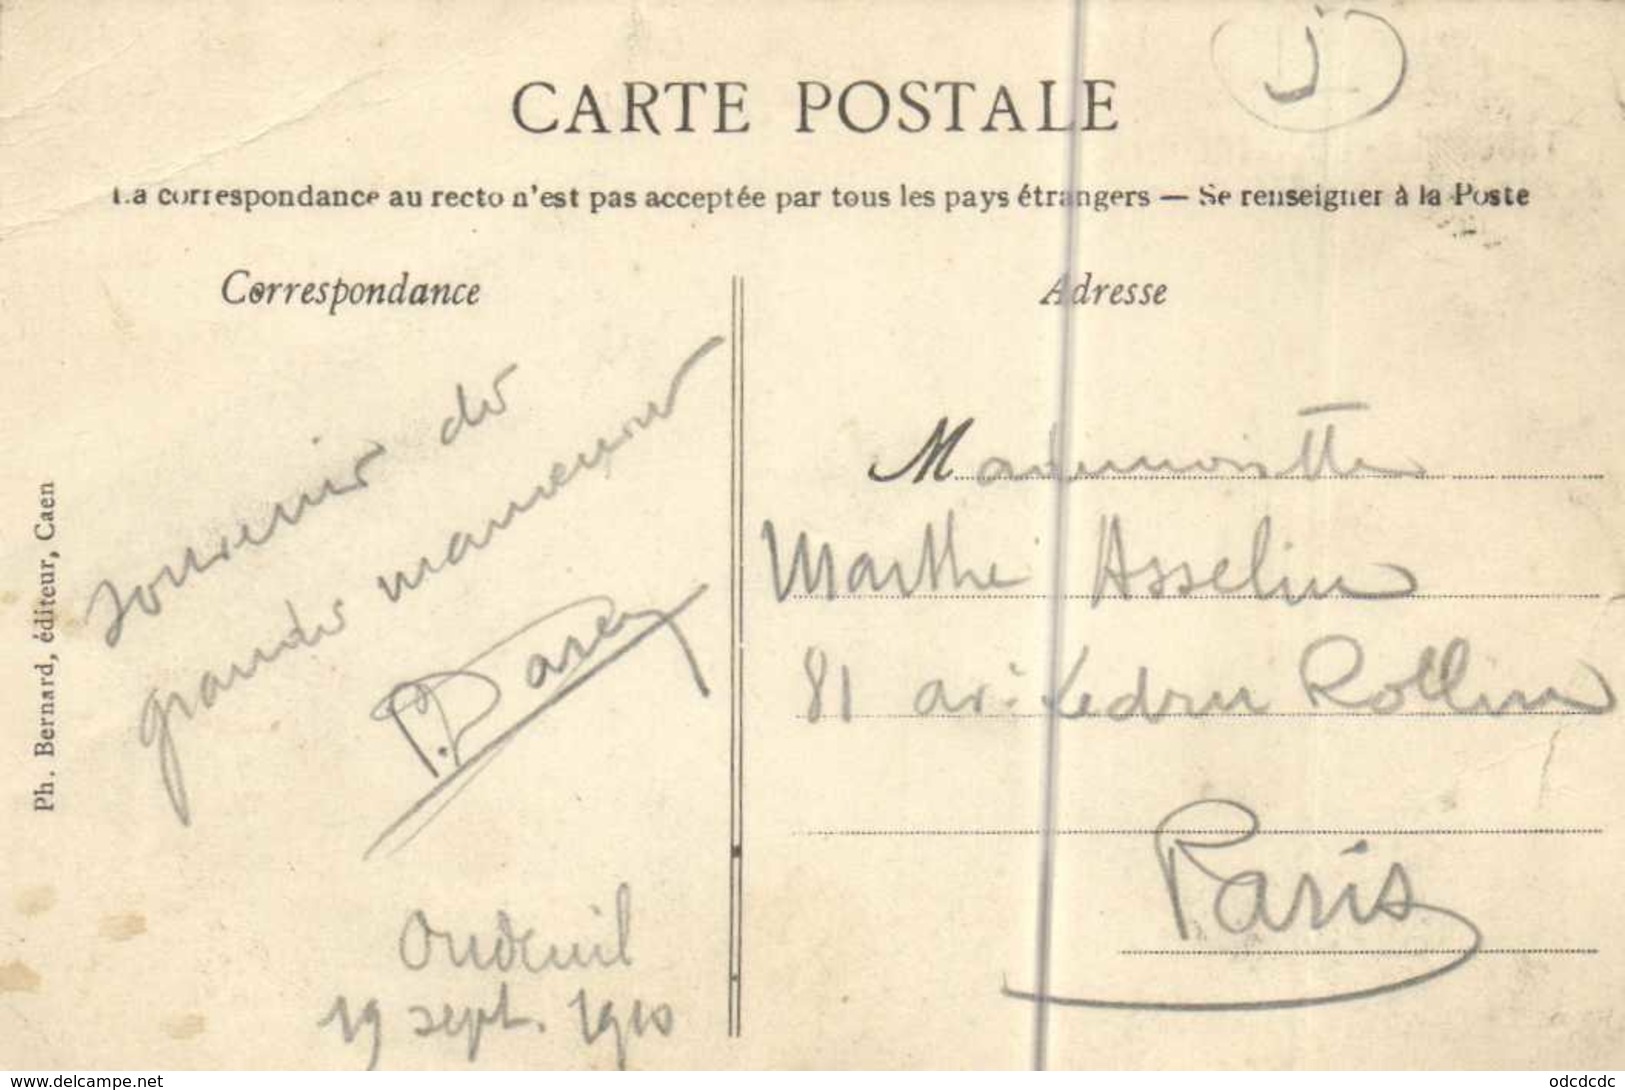 J
CARTE POSTALE
La correspondance au recto n'est pas acceptée par tous les pays étrangers — Se renseigner à la Poste
Correspondance
souvenir des
grandes manoeuvres
Oudeuil
19 sept. 1910
Ph. Bernard, éditeur, Caen
Adresse
Mademoiselle
Marthe Asselin
81 av. Ledru Rollin
Paris
www.delcampe.net
odcdcdc